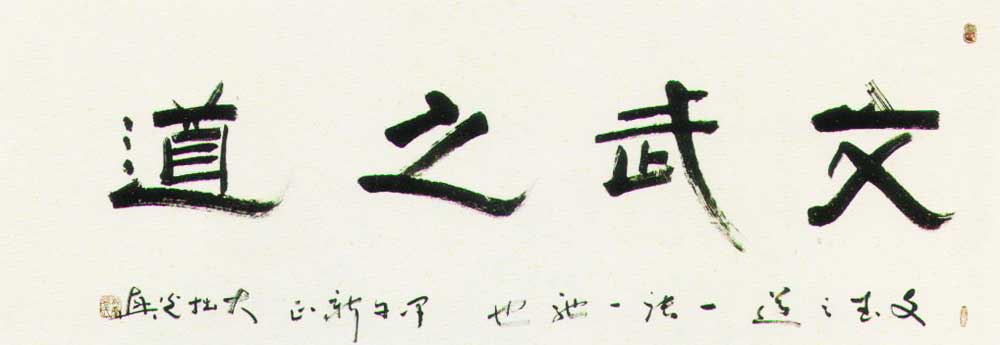 文武之道
文武之道一張一弛也 甲午新正 大拙